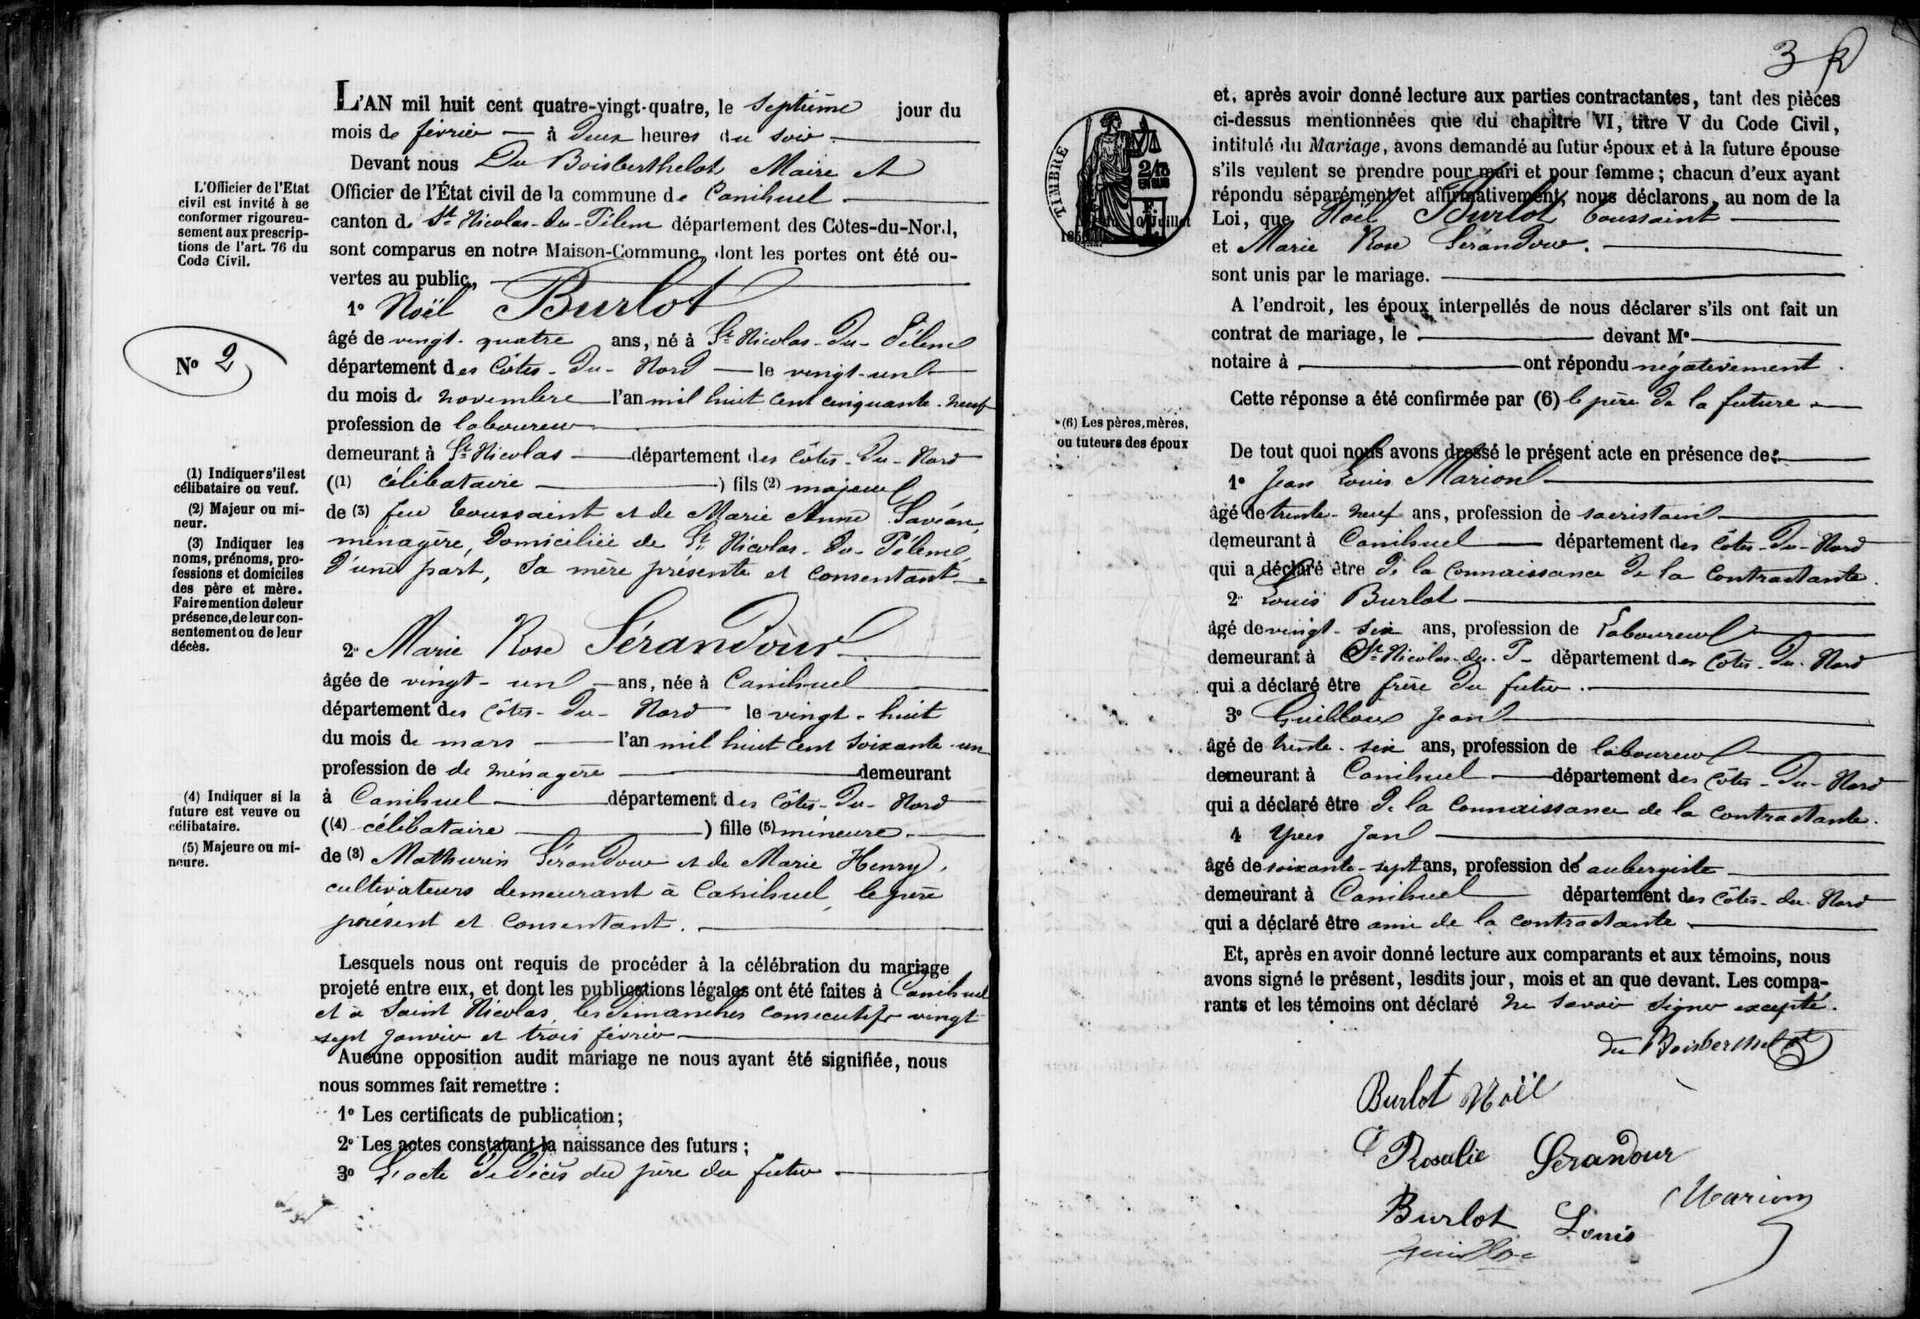 L'AN mil huit cent quatre-vingt-quatre, le septième jour du
mois de février — à deux heures du soir
Devant nous Du Boisberthelot Maire et
Officier de l'État civil de la commune de Canihuel
canton de St Nicolas-du-Pélem département des Côtes-du-Nord,
sont comparus en notre Maison-Commune, dont les portes ont été ou-
vertes au public,
L'Officier de l'Etat
civil est invité à se
conformer rigoureu-
sement aux prescrip-
tions de l'art. 76 du
Code Civil.
No 2
1o Noël Burlot
âgé de vingt-quatre ans, né à St Nicolas-du-Pélem
département des Côtes-du-Nord — le vingt-un
du mois de novembre l'an mil huit cent cinquante-neuf
profession de laboureur
demeurant à St Nicolas — département des Côtes-du-Nord
((1) célibataire ) fils (2) majeur
de (3) feu Toussaint et de Marie Anne
ménagère, domiciliée de St Nicolas-du-Pélem
d'une part, sa mère présente et consentante
(1) Indiquer s'il est
célibataire ou veuf.
(2) Majeur ou mi-
neur.
(3) Indiquer les
noms, prénoms, pro-
fessions et domiciles
des père et mère.
Faire mention de leur
présence, de leur con-
sentement ou de leur
décès.
2o Marie Rose Sérandour
âgée de vingt-un — ans, née à Canihuel
département des Côtes-du-Nord le vingt-huit
du mois de mars — l'an mil huit cent soixante-un
profession de de ménagère — demeurant
à Canihuel — département des Côtes-du-Nord
((4) célibataire ) fille (5) mineure
de (3) Mathurin Sérandour et de Marie Henry,
cultivateurs demeurant à Canihuel, le père
présent et consentant.
(4) Indiquer si la
future est veuve ou
célibataire.
(5) Majeure ou mi-
neure.
Lesquels nous ont requis de procéder à la célébration du mariage
projeté entre eux, et dont les publications légales ont été faites à Canihuel
et à Saint Nicolas, les dimanches consecutifs vingt
sept janvier et trois février
Aucune opposition audit mariage ne nous ayant été signifiée, nous
nous sommes fait remettre :
1o Les certificats de publication;
2o Les actes constatant la naissance des futurs ;
3o L'acte de décès du père du futur
3
TIMBRE
et, après avoir donné lecture aux parties contractantes, tant des pièces
ci-dessus mentionnées que du chapitre VI, titre V du Code Civil,
intitulé du Mariage, avons demandé au futur époux et à la future épouse
s'ils veulent se prendre pour mari et pour femme ; chacun d'eux ayant
répondu séparément et affirmativement, nous déclarons, au nom de la
Loi, que Noël Burlot Toussaint
et Marie Rose Sérandour.
sont unis par le mariage.
A l'endroit, les époux interpellés de nous déclarer s'ils ont fait un
contrat de mariage, le — devant Me
notaire à — ont répondu négativement.
Cette réponse a été confirmée par (6) le père de la future
(6) Les pères, mères,
ou tuteurs des époux
De tout quoi nous avons dressé le présent acte en présence de:
1o Jean Louis Marion
âgé de trente-neuf ans, profession de sacristain
demeurant à Canihuel — département des Côtes-du-Nord
qui a déclaré être de la connaissance de la contractante.
2 Louis Burlot
âgé de vingt-six ans, profession de Laboureur
demeurant à St Nicolas-du-P- département des Côtes-du-Nord
qui a déclaré être frère du futur.
3o Guilloux Jean
âgé de trente-six ans, profession de laboureur
demeurant à Canihuel — département des Côtes-du-Nord
qui a déclaré être de la connaissance de la contractante.
4 Yves Jan
âgé de soixante-sept ans, profession de aubergiste
demeurant à Canihuel département des Côtes-du-Nord
qui a déclaré être ami de la contractante
Et, après en avoir donné lecture aux comparants et aux témoins, nous
avons signé le présent, lesdits jour, mois et an que devant. Les compa-
rants et les témoins ont déclaré ne savoir signer excepté.
du Boisberthelot
Burlot Noël
Rosalie Sérandour
Marion
Burlot Louis